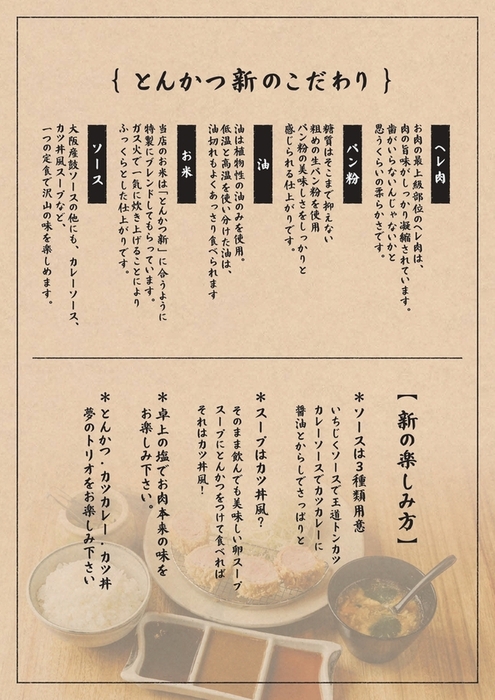 { とんかつ新のこだわり }
ヘレ肉
お肉の最上級部位のヘレ肉は、
肉の旨味がしっかり凝縮されています。
歯がいらないんじゃないかと
思うくらいの柔らかさです。
パン粉
糖質はそこまで抑えない
粗めの生パン粉を使用
パン粉の美味しさをしっかりと
感じられる仕上がりです。
油
油は植物性の油のみを使用。
低温と高温を使い分けた油は、
油切れもよくあっさり食べられます
お米
当店のお米は「とんかつ新」に合うように
特製にブレンドしてもらっています。
ガス火で一気に炊き上げることにより
ふっくらとした仕上がりです。
ソース
大阪産鼓ソースの他にも、カレーソース、
カツ丼風スープなど、
一つの定食で沢山の味を楽しめます。
【新の楽しみ方】
＊ソースは３種類用意
いちじくソースで王道トンカツ
カレーソースでカツカレーに
醤油とからしでさっぱりと
＊スープはカツ丼風？
そのまま飲んでも美味しい卵スープ
スープにとんかつをつけて食べれば
それはカツ丼風！
＊卓上の塩でお肉本来の味を
お楽しみ下さい。
＊とんかつ・カツカレー・カツ丼
夢のトリオをお楽しみ下さい